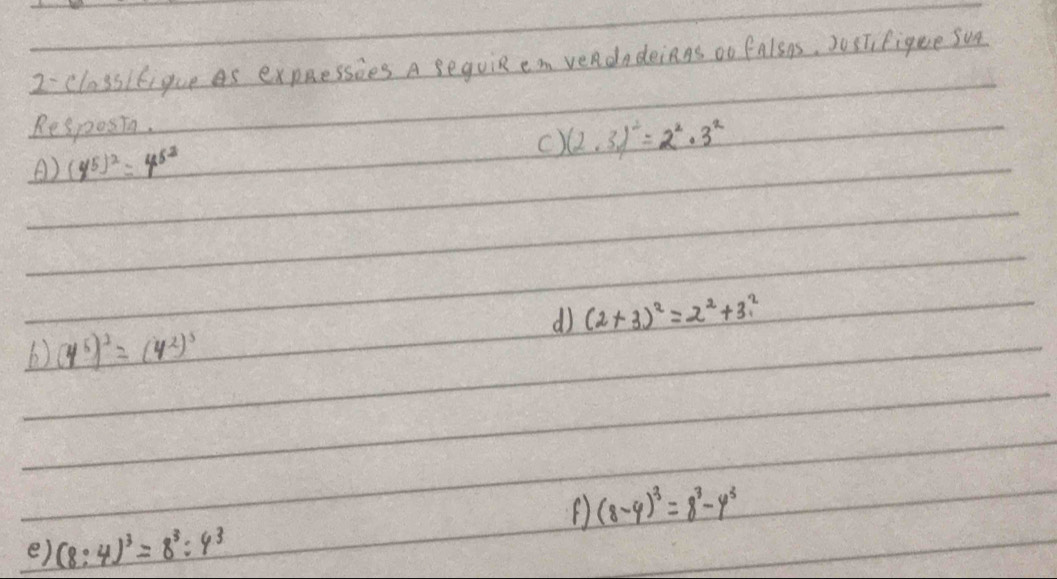 2-Classifique as expressões a seguir em verdadeiras ou falsas. Justifique sua
Resposta.
A) (4⁵)² = 4⁵²
C) (2 . 3)² = 2² . 3²
b) (4⁵)² = (4²)⁵
d) (2+3)² = 2² + 3²
e) (8:4)³ = 8³ : 4³
f) (8-4)³ = 8³ - 4³